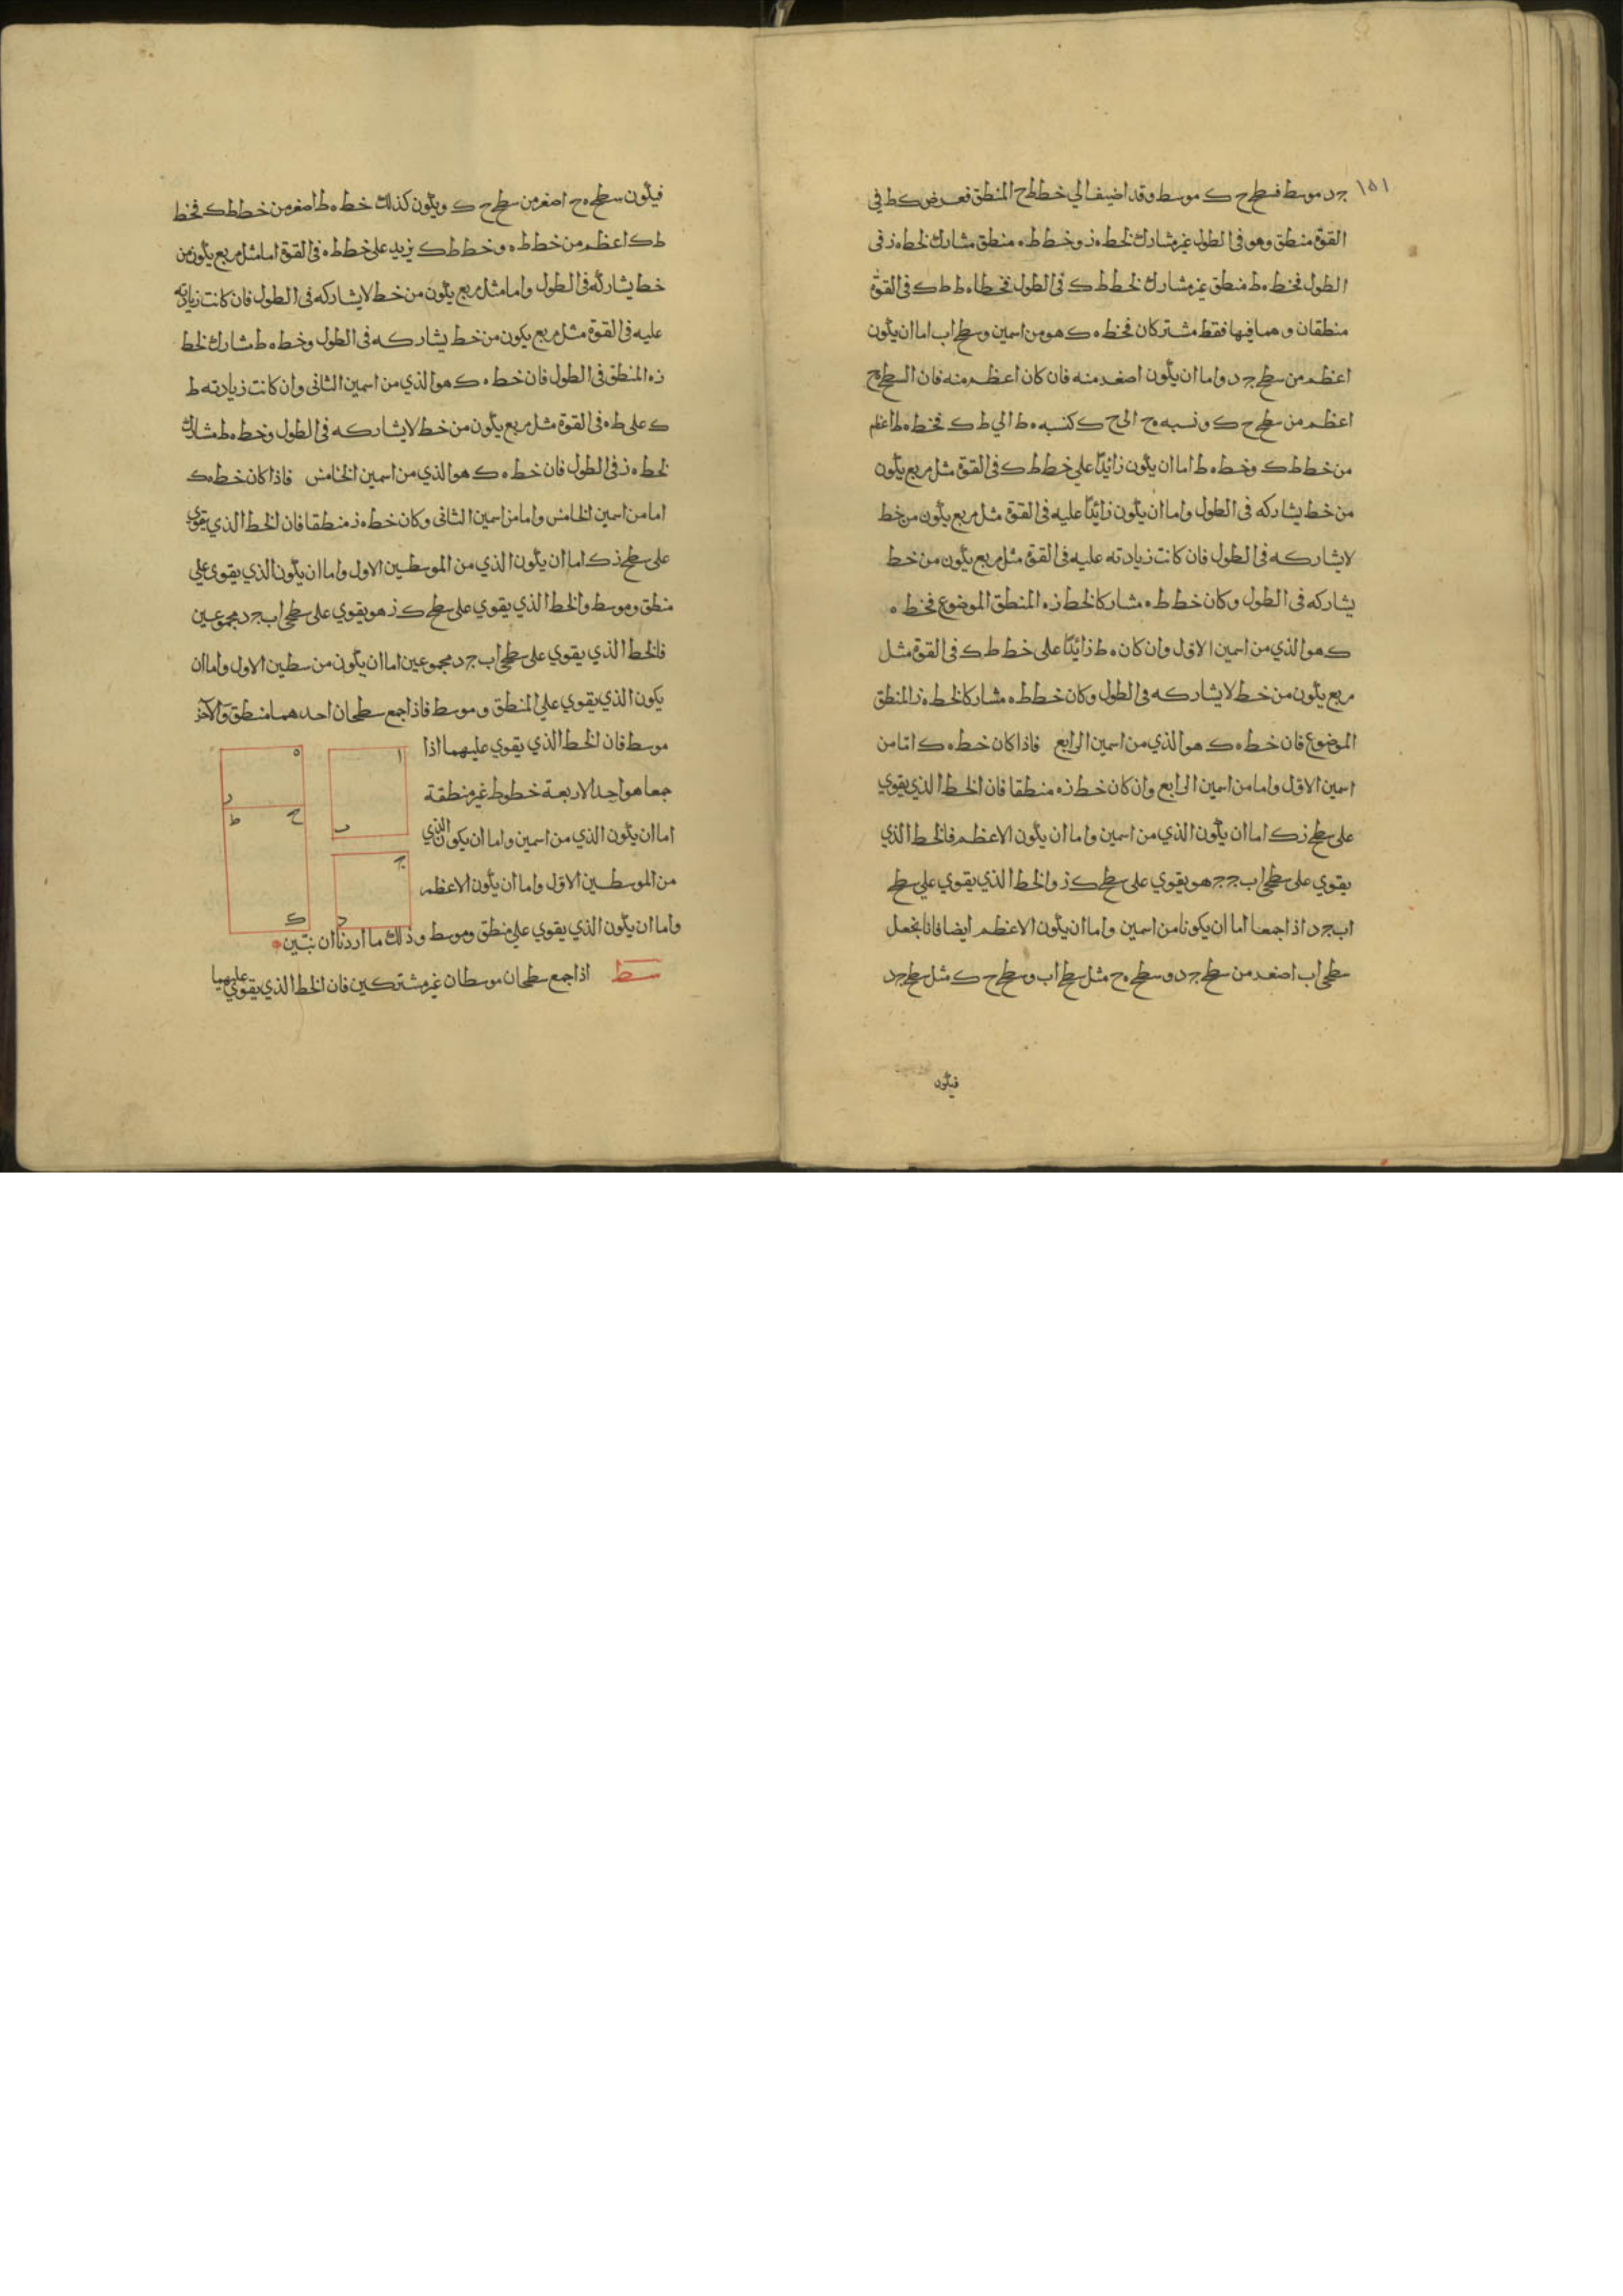 ١٥١
جد موسط فسطح ح ك موسط وقد اضيف الي خط طح المنطق فعرض ك ط في
القوة منطق وهو في الطول غير مشارك لخط ه ز وخط ط ه منطق مشارك لخط ه ز في
الطول فخط ه ط منطق غير مشارك لخط ط ك في الطول فخطا ه ط ط ك في القوة
منطقان وهما فيها فقط مشتركان فخط ه ك هو من اسمين وسطح اب اما ان يكون
اعظم من سطح جد واما ان يكون اصغر منه فان كان اعظم منه فان السطح ه ح
اعظم من سطح ح ك ونسبه ه ح الى ح ك كنسبه ه ط الي ط ك فخط ه ط اعظم
من خط ط ك وخط ه ط اما ان يكون زائدًا علي خط ط ك في القوة مثل مربع يكون
من خط يشاركه في الطول واما ان يكون زائدًا عليه في القوة مثل مربع يكون من خط
لا يشاركه في الطول فان كانت زيادته عليه في القوة مثل مربع يكون من خط
يشاركه في الطول وكان خط ط ه مشاركا لخط ز ه المنطق الموضوع فخط ه
ك هو الذي من اسمين الاول وان كان ه ط زائدًا على خط ط ك في القوة مثل
مربع يكون من خط لا يشاركه في الطول وكان خط ط ه مشاركا لخط ه ز المنطق
الموضوع فان خط ه ك هو الذي من اسمين الرابع فاذا كان خط ه ك امّا من
اسمين الاول واما من اسمين الرابع وان كان خط ز ه منطقا فان الخط الذي يقوي
على سطح ز ك اما ان يكون الذي من اسمين واما ان يكون الاعظم فالخط الذي
يقوي على سطحي اب ج ج هو يقوي على سطح ك ز والخط الذي يقوي علي سطح
اب جد اذا جمعا اما ان يكونا من اسمين واما ان يكون الاعظم ايضا فانا نجعل
سطحي اب اصغر من سطح جد وسطح ه ح مثل سطح اب وسطح ح ك مثل سطح جد
فيكون
فيكون سطح ه ح اصغر من سطح ح ك ويكون كذلك خط ه ط اصغر من خط ط ك فخط
ط ك اعظم من خط ط ه وخط ط ك يزيد على خط ط ه في القوة اما مثل مربع يكون من
خط يشاركه في الطول واما مثل مربع يكون من خط لا يشاركه في الطول فان كانت زيادته
عليه في القوة مثل مربع يكون من خط يشاركه في الطول وخط ه ط مشارك لخط
ز ه المنطق في الطول فان خط ه ك هو الذي من اسمين الثاني وان كانت زيادته ط
ك على ط ه في القوة مثل مربع يكون من خط لا يشاركه في الطول وخط ه ط مشارك
لخط ه ز في الطول فان خط ه ك هو الذي من اسمين الخامس فاذا كان خط ه ك
اما من اسمين الخامس واما من اسمين الثاني وكان خط ه ز منطقا فان الخط الذي يقوي
على سطح ز ك اما ان يكون الذي من الموسطين الاول واما ان يكون الذي يقوى علي
منطق وموسط والخط الذي يقوي على سطح ك ز هو يقوي على سطحي اب جد مجموعين
فالخط الذي يقوي على سطحي اب جد مجموعين اما ان يكون من سطين الاول واما ان
يكون الذي يقوي علي المنطق وموسط فاذا جمع سطحان احدهما منطق والآخر
موسط فان الخط الذي يقوي عليهما اذا
جمعا هو احد الاربعة خطوط غير منطقة
اما ان يكون الذي من اسمين واما ان يكون الذي
من الموسطين الاول واما ان يكون الاعظم
واما ان يكون الذي يقوي على منطق وموسط وذلك ما اردنا ان نبيّن
سط اذا جمع سطحان موسطان غير مشتركين فان الخط الذي يقوي عليهما
ا
ب
ج
د
ه
ز
ح
ط
ك